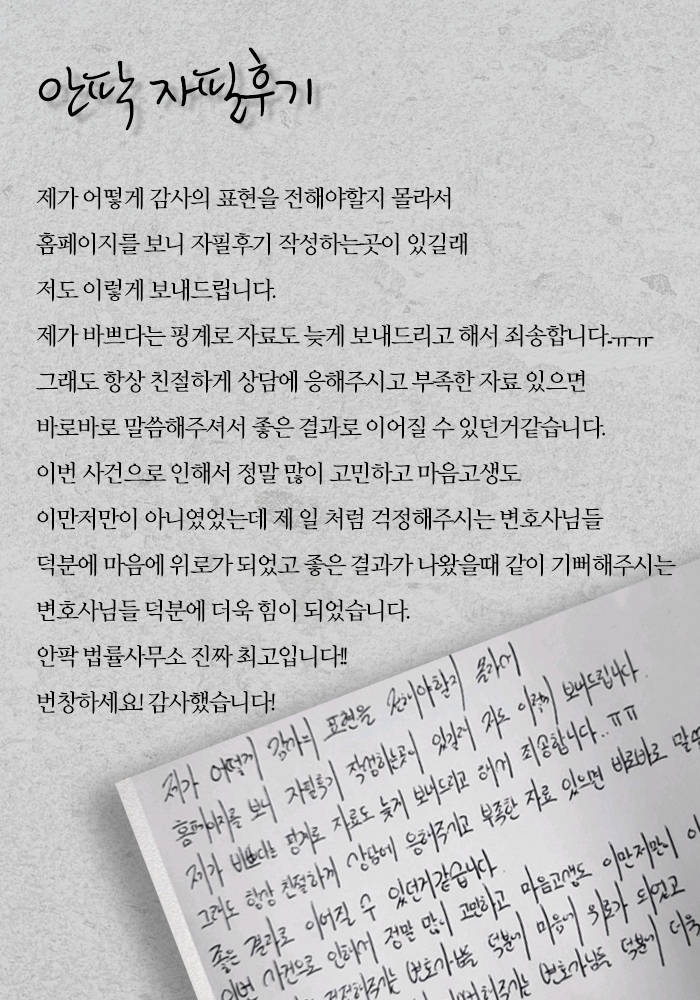 안팍 자필후기
제가 어떻게 감사의 표현을 전해야할지 몰라서
홈페이지를 보니 자필후기 작성하는곳이 있길래
저도 이렇게 보내드립니다.
제가 바쁘다는 핑계로 자료도 늦게 보내드리고 해서 죄송합니다..ㅠㅠ
그래도 항상 친절하게 상담에 응해주시고 부족한 자료 있으면
바로바로 말씀해주셔서 좋은 결과로 이어질 수 있던거같습니다.
이번 사건으로 인해서 정말 많이 고민하고 마음고생도
이만저만이 아니였었는데 제 일 처럼 걱정해주시는 변호사님들
덕분에 마음에 위로가 되었고 좋은 결과가 나왔을때 같이 기뻐해주시는
변호사님들 덕분에 더욱 힘이 되었습니다.
안팍 법률사무소 진짜 최고입니다!!
번창하세요! 감사했습니다!
제가 어떻게 감사의 표현을 전해야할지 몰라서
홈페이지를 보니 자필후기 작성하는곳이 있길래 저도 이렇게 보내드립니다.
제가 바쁘다는 핑계로 자료도 늦게 보내드리고 해서 죄송합니다..ㅠㅠ
그래도 항상 친절하게 상담에 응해주시고 부족한 자료 있으면 바로바로 말씀
좋은 결과로 이어질 수 있던거같습니다.
이번 사건으로 인해서 정말 많이 고민하고 마음고생도 이만저만이
걱정해주시는 변호사님들 덕분에 마음에 위로가 되었고
변호사님들 덕분에 더욱